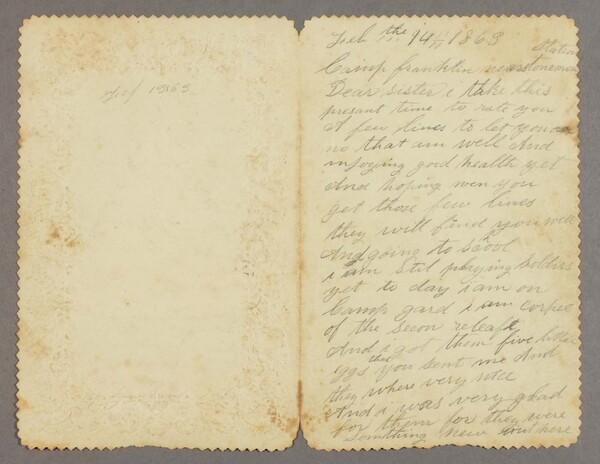 of 1863
Feb the 14th 1863
Camp franklin near stoneman
Station
Dear sister i take this
present time to rate you
A few lines to let you
no that am well And
injoying good health yet
And hoping wen you
get those few lines
they will find you well
And going to scool
i am stil playing soldirs
yet to day i am on
Camp gard i am corpel
of the secon releaf
And i got them five
Eggs that you sent me And
they where very nice
And i was very glad
for them for they were
something new out here